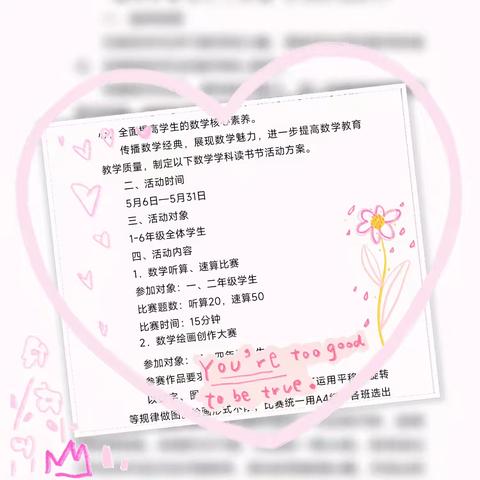 全面提高学生的数学核心素养。
传播数学经典，展现数学魅力，进一步提高数学教育
教学质量，制定以下数学学科读书节活动方案。
二、活动时间
5月6日—5月31日
三、活动对象
1-6年级全体学生
四、活动内容
1．数学听算、速算比赛
参加对象：一、二年级学生
比赛题数：听算20，速算50
比赛时间：15分钟
2．数学绘画创作大赛
参加对象：
You're too good
to be true.
参赛作品要求
运用平移
旋转
等规律做图
比赛统一用A4
各班选出